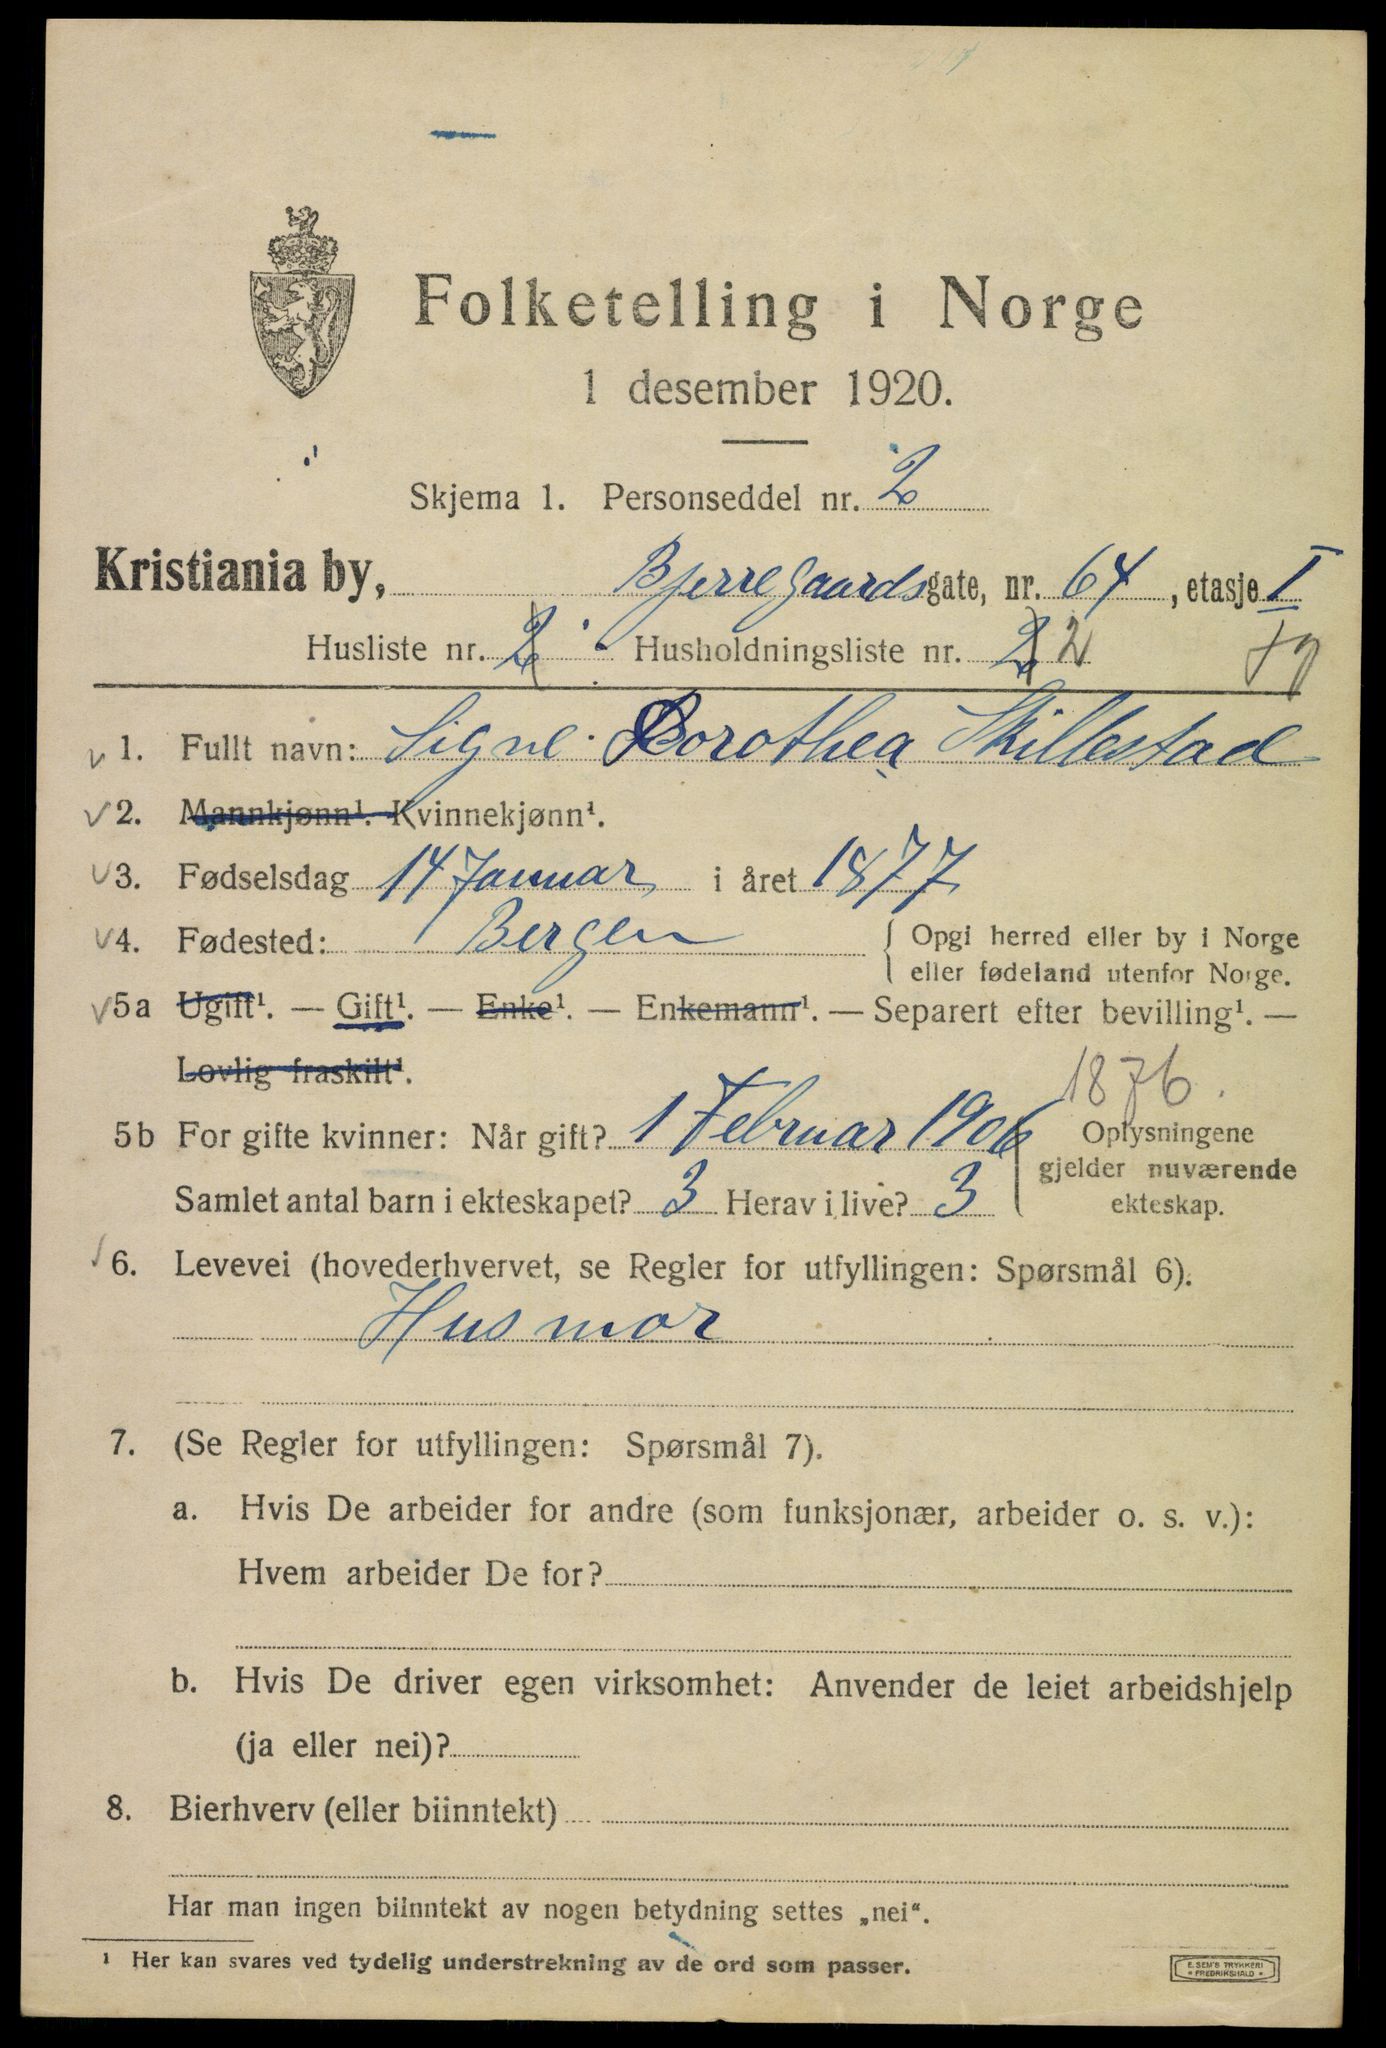 Folketelling i Norge
1 desember 1920.
Skjema 1. Personseddel nr. 2
Kristiania by, Bjerregaardsgate, nr. 64, etasje I
Husliste nr. 2 Husholdningsliste nr. 2 2
1. Fullt navn: Signe Dorothea Skillestad
2. Mannkjønn¹. Kvinnekjønn¹.
3. Fødselsdag 14 Januar i året 1877
4. Fødested: Bergen { Opgi herred eller by i Norge
eller fødeland utenfor Norge.
5a Ugift¹. — Gift¹. — Enke¹. — Enkemann¹. — Separert efter bevilling¹. —
Lovlig fraskilt¹.
1876.
5b For gifte kvinner: Når gift? 1 Februar 1906 Oplysningene
gjelder nuværende
Samlet antal barn i ekteskapet? 3 Herav i live? 3 ekteskap.
6. Levevei (hovederhvervet, se Regler for utfyllingen: Spørsmål 6).
Husmor
7. (Se Regler for utfyllingen: Spørsmål 7).
a. Hvis De arbeider for andre (som funksjonær, arbeider o. s. v.):
Hvem arbeider De for?
b. Hvis De driver egen virksomhet: Anvender de leiet arbeidshjelp
(ja eller nei)?
8. Bierhverv (eller biinntekt)
Har man ingen biinntekt av nogen betydning settes „nei“.
¹ Her kan svares ved tydelig understrekning av de ord som passer.
E. SEM'S TRYKKERI
• FREDRIKSHALD •